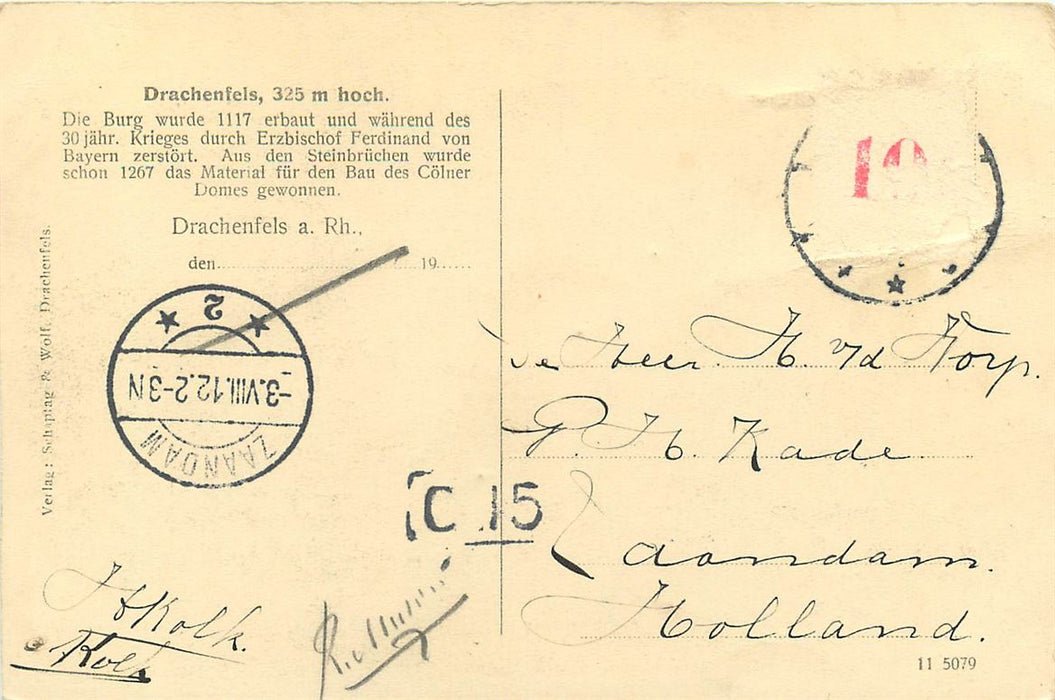 Drachenfels, 325 m hoch.
Die Burg wurde 1117 erbaut und während des
30 jähr. Krieges durch Erzbischof Ferdinand von
Bayern zerstört. Aus den Steinbrüchen wurde
schon 1267 das Material für den Bau des Cölner
Domes gewonnen.
Drachenfels a. Rh.,
den 19
Verlag: Schaptag & Wolf, Drachenfels.
2
-3.VIII.12.2-3N
ZAANDAM
19
De Heer H. v/d
P. H. Kade.
Zaandam.
Holland.
C 15
Kolk.
Kolk
11 5079